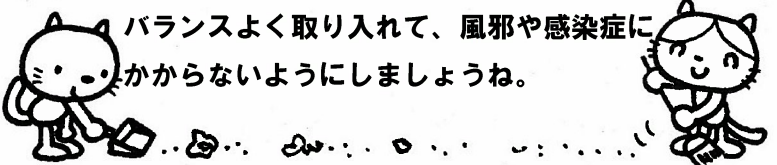 バランスよく取り入れて、風邪や感染症に
かからないようにしましょうね。